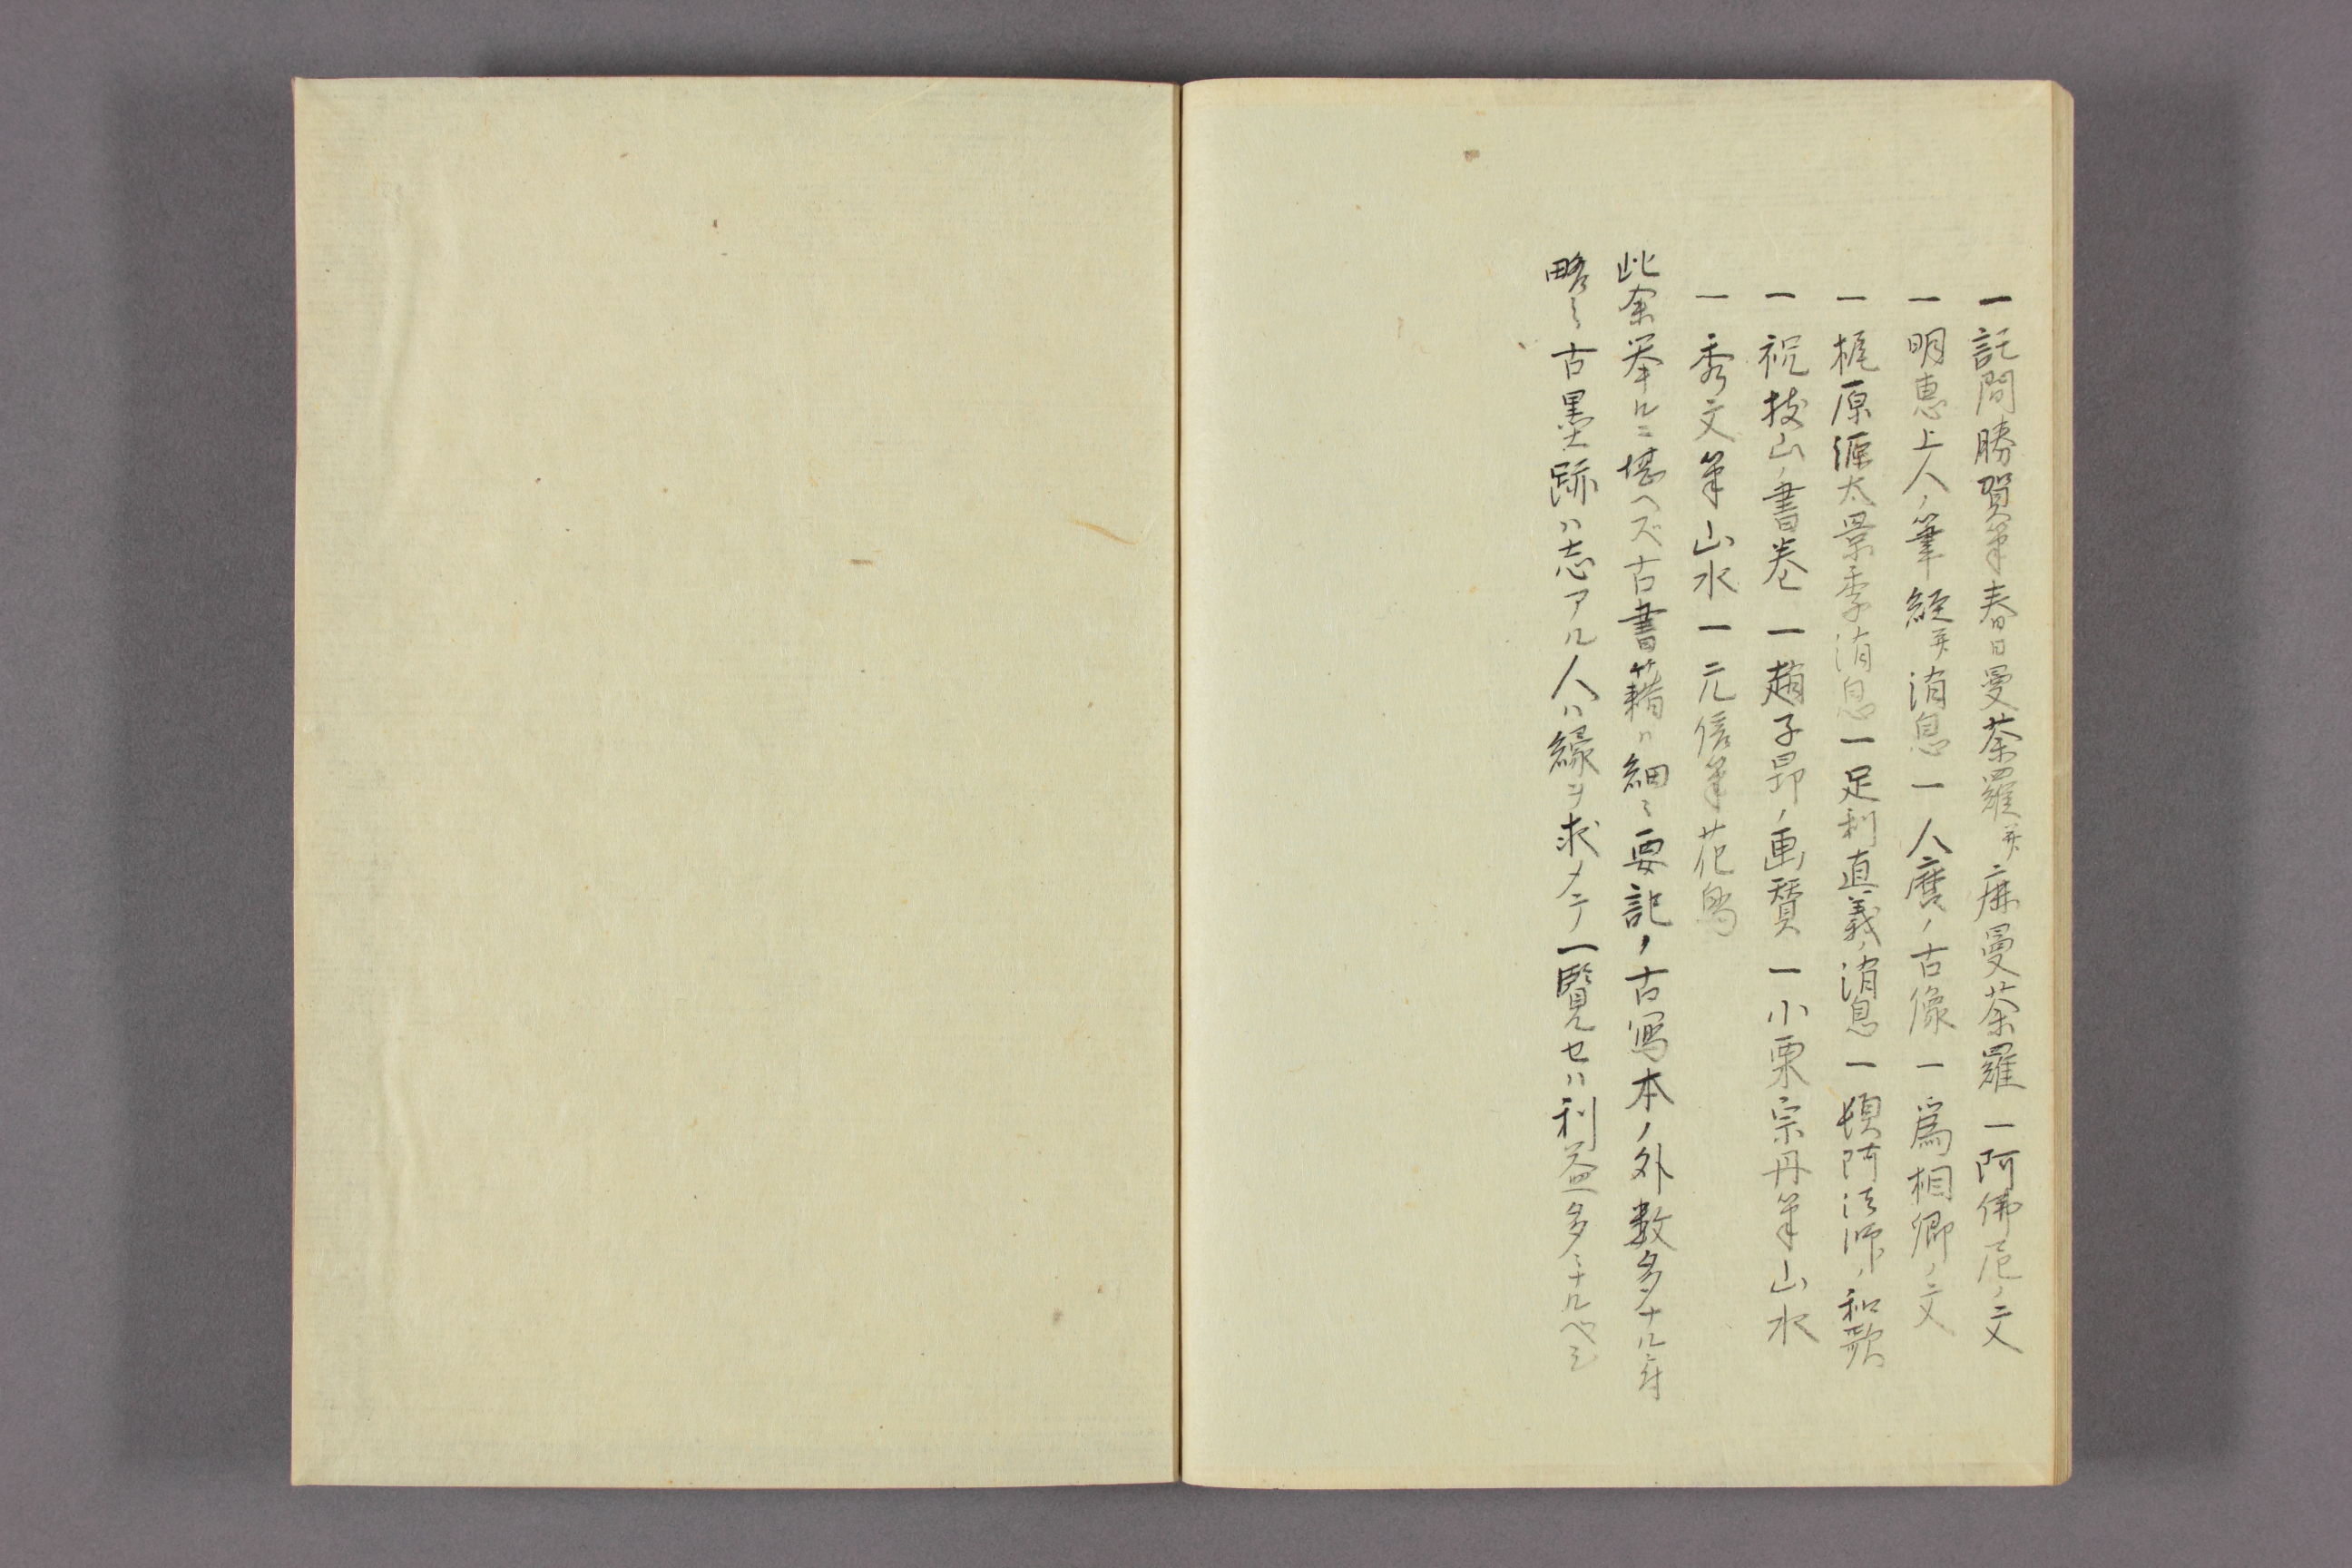 一 託間勝賀筆春日曼荼羅并麻曼荼羅 一 阿佛尼ノ文
一 明恵上人ノ筆経并消息 一 人麿ノ古像 一 為相卿ノ文
一 梶原源太景季消息 一 足利直義ノ消息 一 頓阿法師ノ和歌
一 祝枝山ノ書巻 一 趙子昂ノ画賛 一 小栗宗丹筆山水
一 秀文筆山水 一 元信筆花鳥
此余挙ルニ堪ヘズ古書籍ハ細ミ要記ノ古写本ノ外数多ナル故
略之古墨跡ハ志アル人ハ縁ヲ求メテ一覧セハ利益多ミナルヘシ